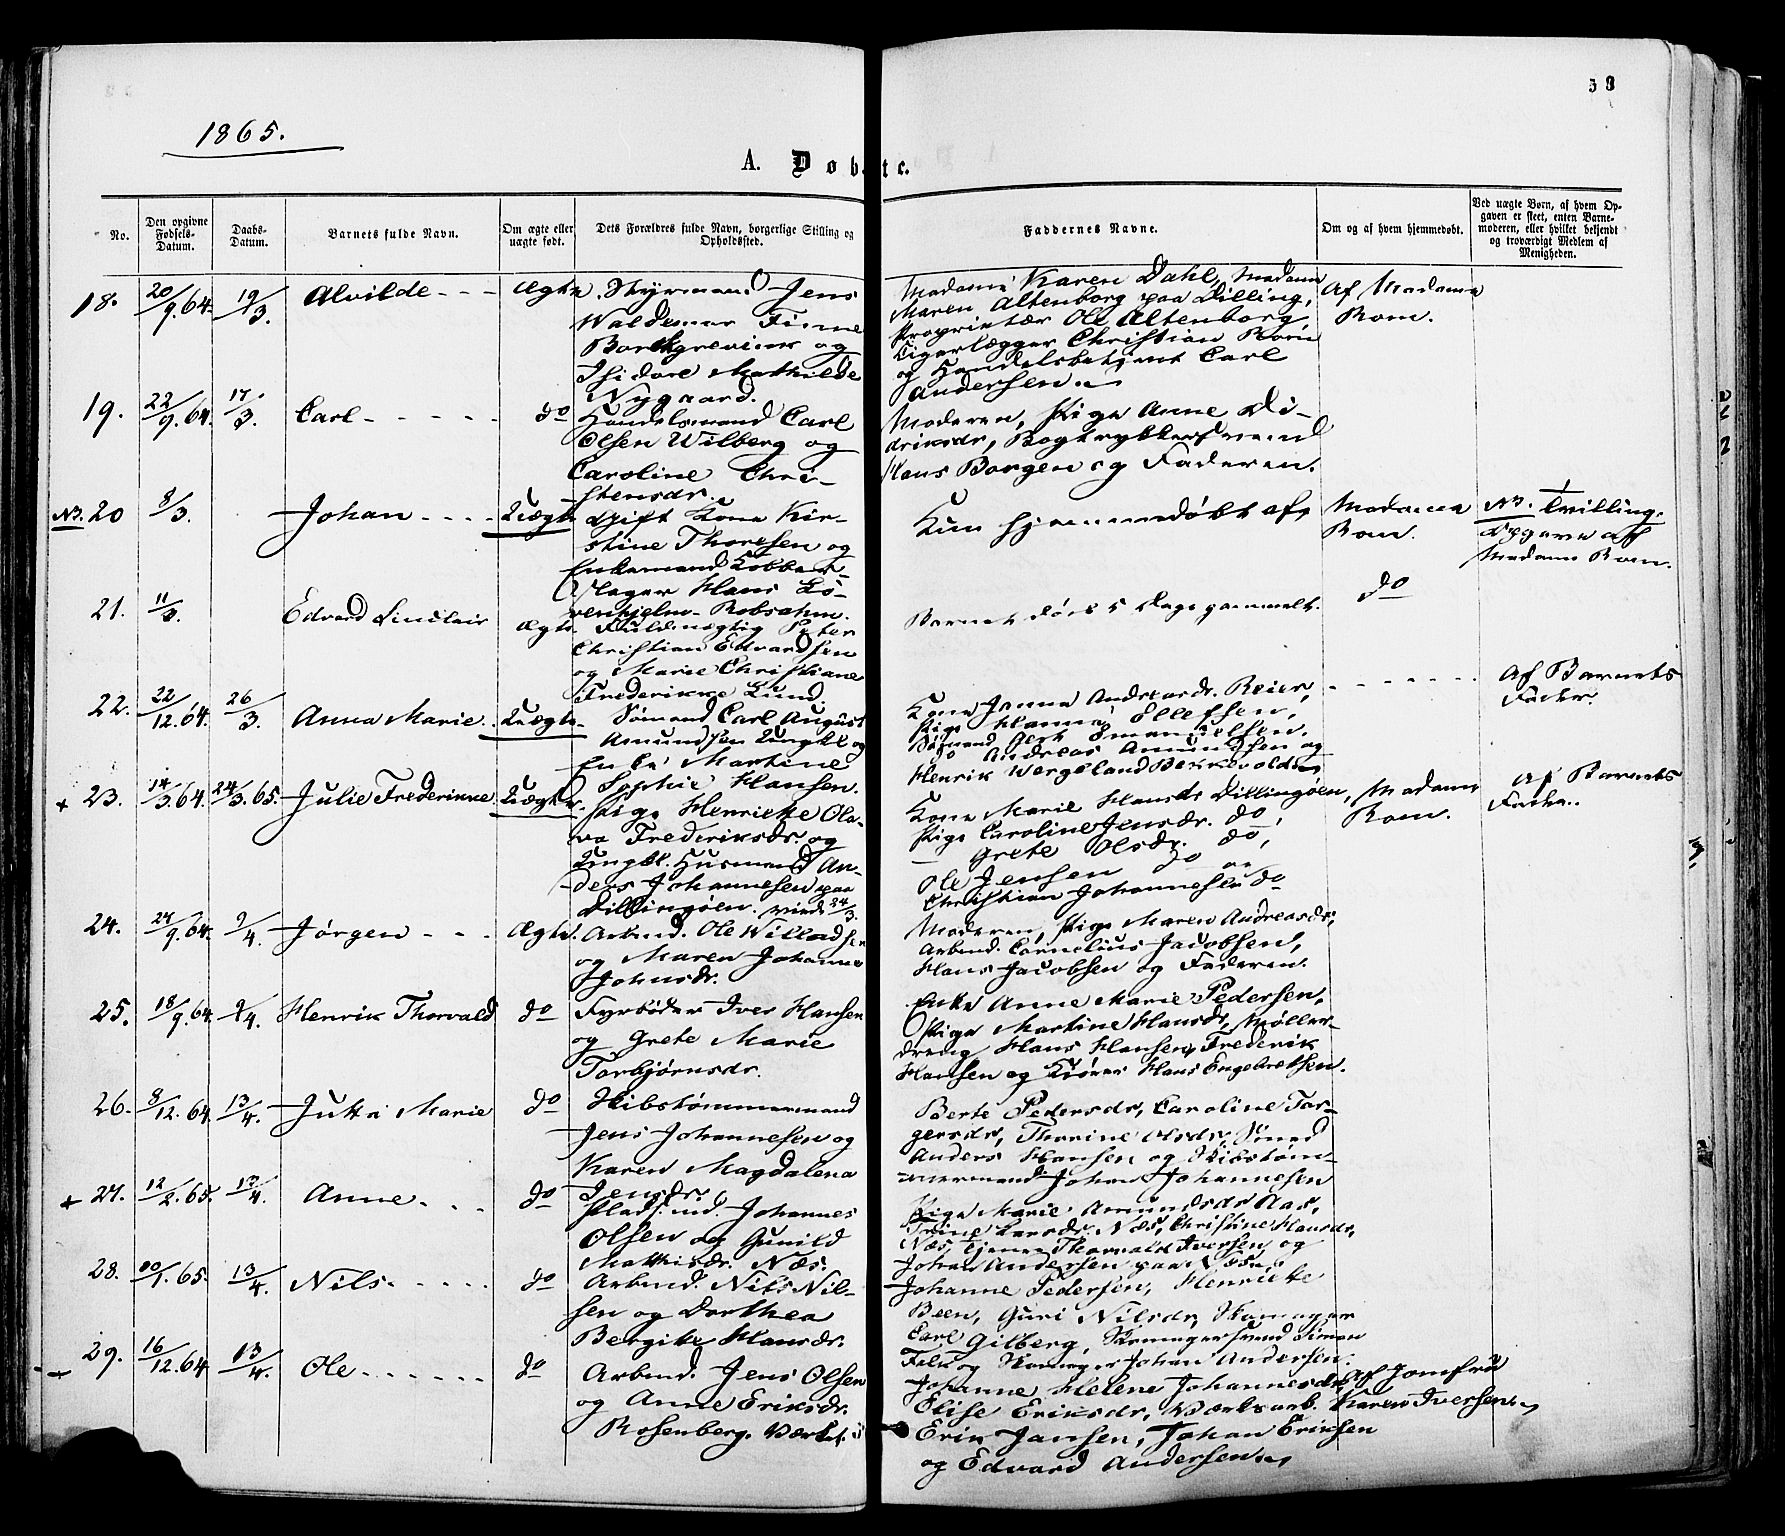 53
1865.
A. Døbte.
No.
Den opgivne Fødsels-Datum.
Daabs-Datum.
Barnets fulde Navn.
Om ægte eller uægte født.
Dets Forældres fulde Navn, borgerlige Stilling og Opholdssted.
Faddernes Navne.
Om og af hvem hjemmedøbt.
Ved uægte Børn, af hvem Opgaven er skeet, enten Barnemoderen, eller hvilket bekjendt og troværdigt Medlem af Menigheden.
18. 20/9. 64. 19/3. Alvilde Ægte. Styrmand Jens
Waldemar Finne
Borchgrevink og
Isidore Mathilde
Nygaard.
Madame Karen Dahl, Madam
Maren Altenborg paa Dilling,
Proprietær Ole Altenborg,
Christian Rom
og Handelsbetjent Carl
Andersen.
Af Madame
Rom.
19. 22/9. 64. 17/3. Carl do Handelsmand Carl
Olsen Wilberg og
Caroline Chri-
stensdr.
Moderen, Pige Anne Di-
driksdr, Bogtrykkersvend
Hans Borgen og Faderen.
NB. 20 8/3. Johan Uægte gift Kone Kir-
stine Thoresen og
Enkemand Kobber-
slager Hans Lö-
venhjelm Robsahm.
Kun hjemmedøbt af
Madame
Rom.
NB. Tvilling.
Opgave af
Madame Rom.
21. 11/3. Edvard Sinclair Ægte. Fuldmægtig Peter
Christian Edvardsen
og Marie Christiane
Frederikke Lund
Barnet døde 5 Dage gammelt.
do
22. 22/12. 64. 26/3. Anna Marie Uægte. Sømand Carl August
Amundsen Ungkl og
Enke Martine
Sophie Hansen.
Kone Janna Andreasdr. Reier,
Pige Hanna Ellefsen,
Sømand Emanuelsen,
do Andreas Amundsen og
Henrik Wergeland
Af Barnets
Fader.
+ 23. 14/3. 64. 24/3. 65. Julie Frederikke Uægte. Pige Henriette Ola-
va Frederiksdr. og
Ungkl. Husmand An-
ders Johannesen paa
Dillingøen. 24/3.
Kone Marie Hansdr Dillingøen,
Pige Caroline Jensdr. do,
— Grete Olsdr. do,
Ole Jensen do og
Christian Johannesen do
Madame
Rom.
Af Barnets
Fader.
24. 27/9. 64. 9/4. Jørgen Ægte. Arbmd. Ole Willadsen
og Maren Johanne
Johnsdr.
Moderen, Pige Maren Andreasdr,
Arbmd. Cornelius Jacobsen,
Hans Jacobsen og Faderen.
25. 18/9. 64. 9/4. Henrik Thorvald do Fyrbøder Iver Hansen
og Grete Marie
Torbjørnsdr.
Enke Anne Marie Pedersen,
Pige Martine Hansdr, Møller-
dreng Hans Hansen, Frederik
Hansen og Hans Engebretsen.
26. 8/12. 64 13/4. Jutta Marie do Skibstømmermand
Jens Johannesen og
Karen Magdalena
Jensdr.
Berte Pedersdr, Caroline Tor-
gersdr, Thorine Olsdr, Smed
Anders Hansen og Skibstøm-
mermand Johan Johannesen
+ 27. 12/2. 65. 13/4. Anne do Pladsmd. Johannes
Olsen og Gunild
Mathisdr. Næs.
Pige Marie Amundsdr Aas,
Trine Larsdr. Næs, Christine Hansdr,
Næs, tjener Thorvald Iversen og
Johan Andersen paa Næs.
28. 20/1. 65. 13/4. Nils do Arbmd. Nils Nil-
sen og Dorthea
Bergite Hansdr.
Johanne Pedersen, Henriette
Been, Guri Nilsdr, Skomager
Carl Gilberg, Skomagersvend Simon
Falk og Skomager Johan Andersen.
29. 16/12. 64 13/4. Ole do Arbmd. Jens Olsen
og Anne Eriksdr.
Rosenberg.
Johanne Helene Johannesdr,
Elise Eriksdr, Værksarb.
Erik Jansen, Johan Eriksen
og Edvard Andersen.
Af Jomfru
Karen Iversen.